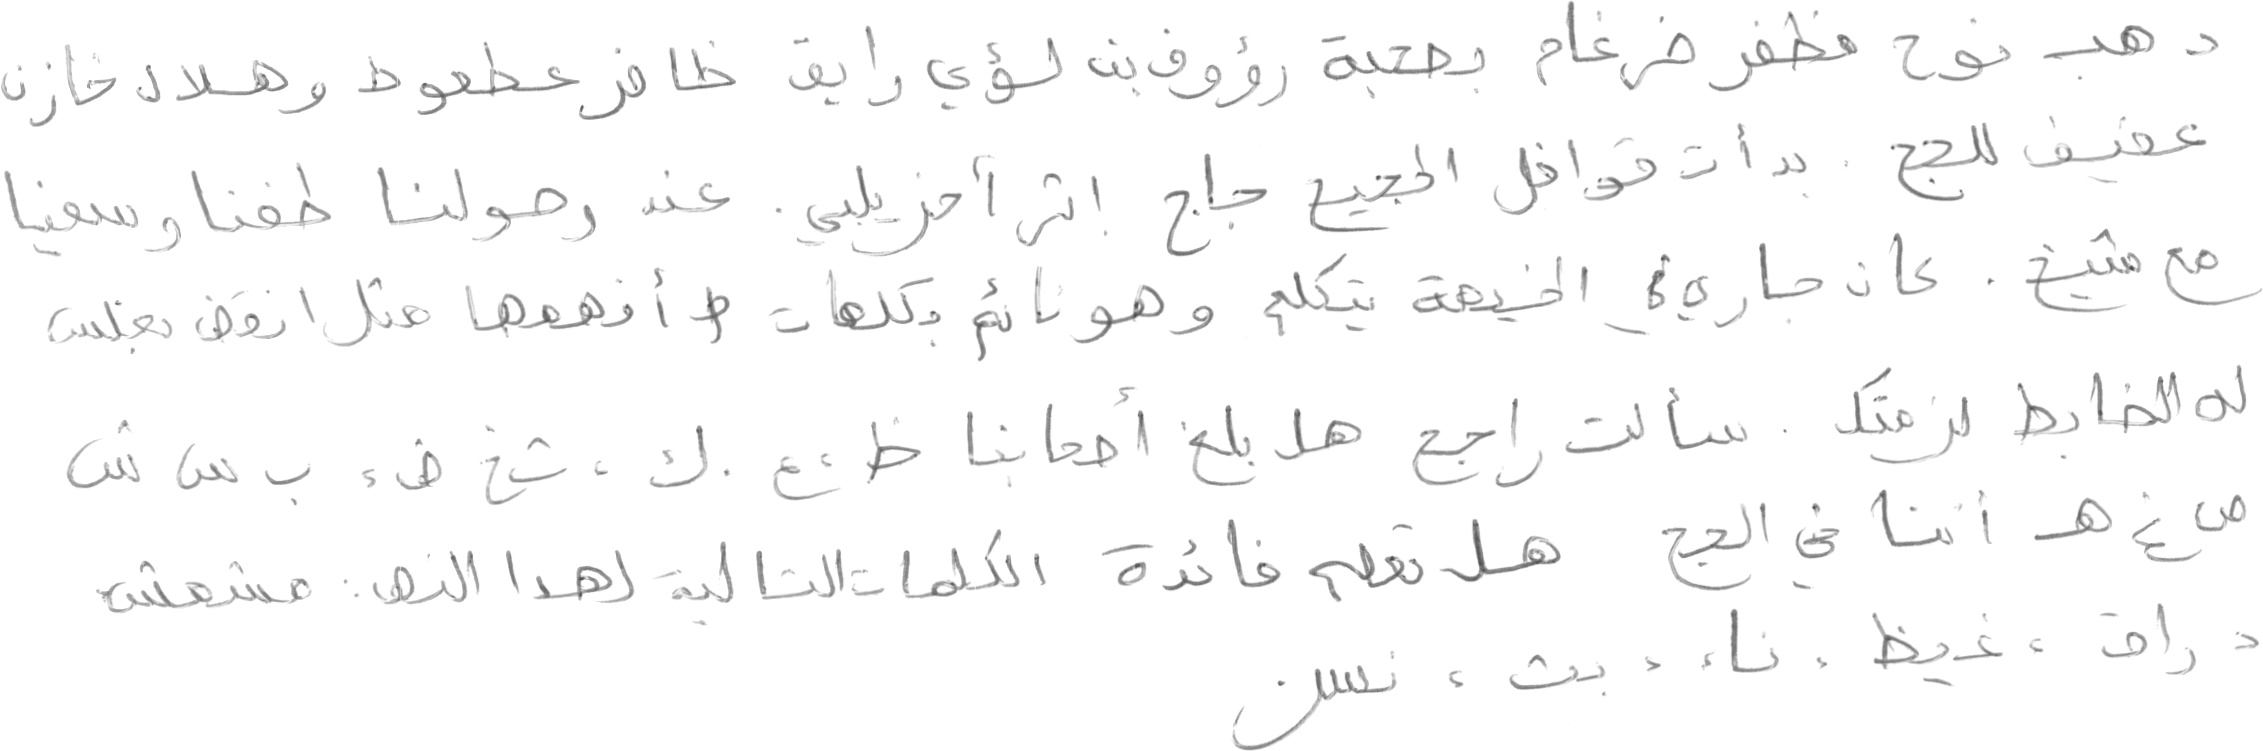 ذهب نوح مظفر ضرغام بصحبة رؤوف بن لؤي رايق ظافر عطعوط وهلال خازن
عفيف للحج . بدأت قوافل الحجيج حاج إثر آخر يلبي . عند وصولنا طفنا وسعينا
مع شيخ . كان جاري في الخيمة يتكلم وهو نائم بكلمات لا أفهمها مثل انقض بجلس
له الضابط لزمتك . سألت راجح هل بلغ أصحابنا ظ ، ع . ك ، ش خ ض ، ب س ش
ص غ هـ أننا في الحج هل تعلم فائدة الكلمات التالية لهذا النص : مشمش
دراق ، غيظ ، ناء ، بث ، نسر